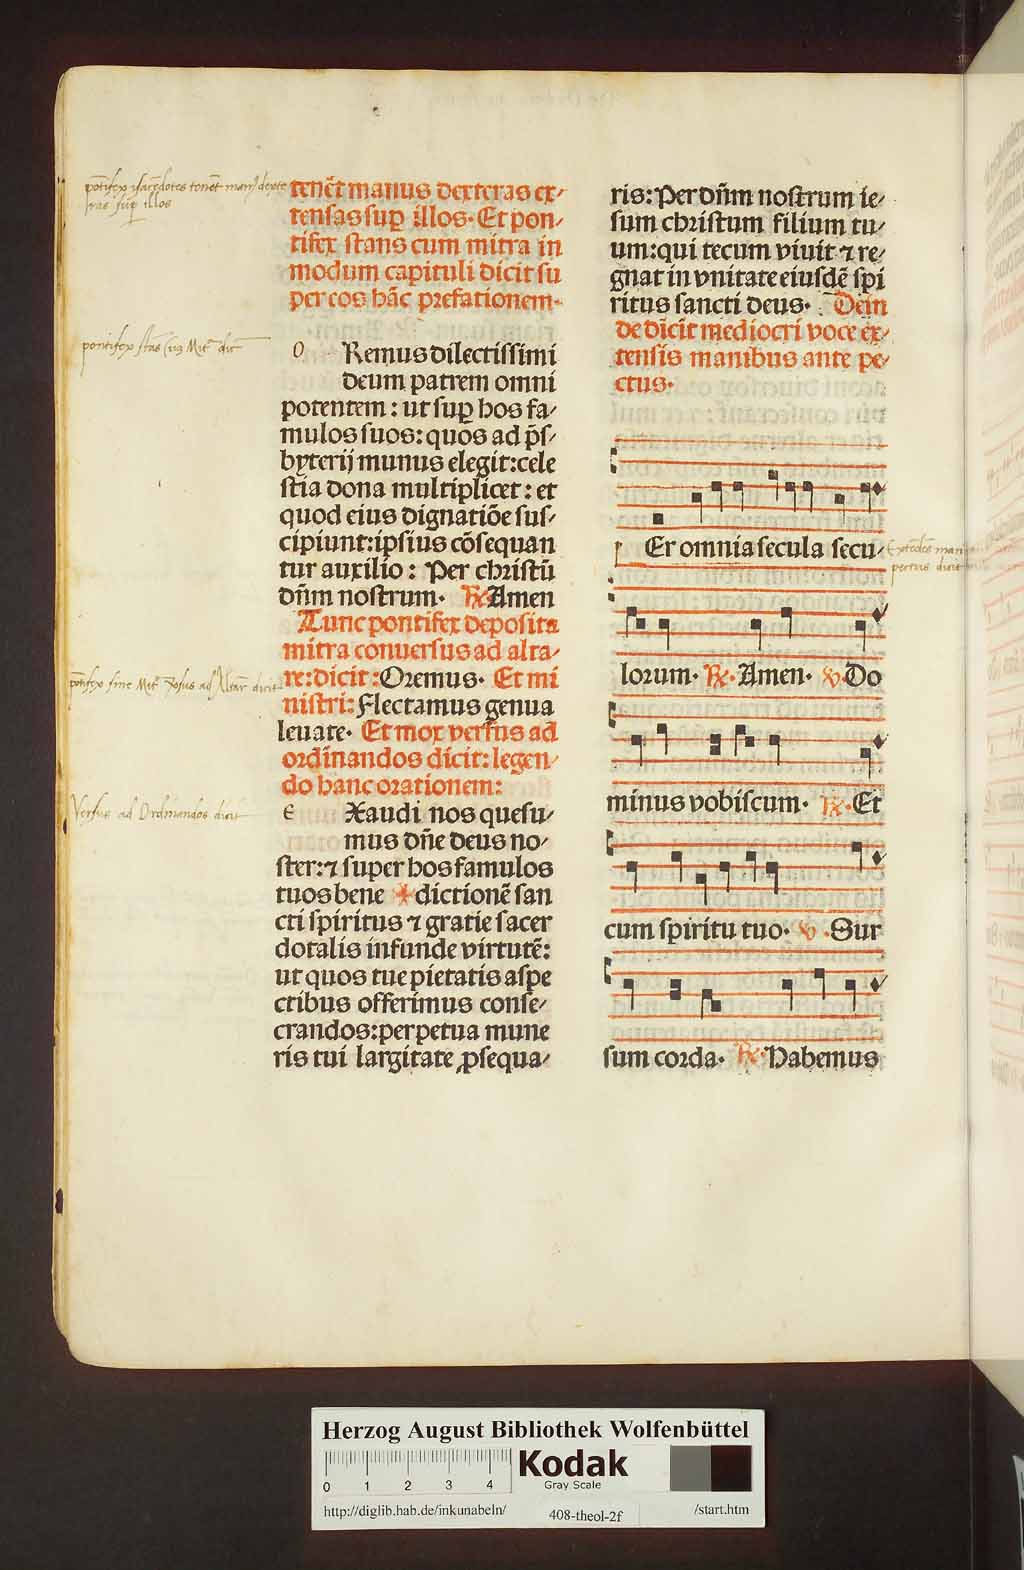 tenēt manus dexteras ex-
tensas suꝑ illos. Et pon-
tifex stans cum mitra in
modum capituli dicit su
per eos hāc prefationem.
O Remus dilectissimi
deum patrem omni
potentem: ut suꝑ hos fa-
mulos suos: quos ad p̄s-
byterij munus elegit: cele
stia dona multiplicet: et
quod eius dignatiōe sus-
cipiunt: ipsius cōsequan
tur auxilio: Per christū
dn̄m nostrum. ℟ Amen
Tunc pontifex deposita
mitra conuersus ad alta-
re: dicit: Oremus. Et mi
nistri: Flectamus genua
leuate. Et mox versus ad
ordinandos dicit: legen-
do hanc orationem:
e Xaudi nos quesu-
mus dn̄e deus no-
ster: ⁊ super hos famulos
tuos bene ✠ dictionē san
cti spiritus ⁊ gratie sacer
dotalis infunde virtutē:
ut quos tue pietatis aspe
ctibus offerimus conse-
crandos: perpetua mune
ris tui largitate ꝓsequa-
ris: Per dn̄m nostrum ie-
sum christum filium tu-
um: qui tecum viuit ⁊ re-
gnat in vnitate eiusdē spi
ritus sancti deus. Dein
de dicit mediocri voce ex-
tensis manibus ante pe-
ctus.
p Er omnia secula secu-
lorum. ℟. Amen. ℣. Do
minus vobiscum. ℟. Et
cum spiritu tuo. ℣. Sur
sum corda. ℟. Habemus
pontifex stās cū Mit. dic
Versus ad Ordinandos dicit
Herzog August Bibliothek Wolfenbüttel
0 1 2 3 4
Kodak
Gray Scale
http://diglib.hab.de/inkunabeln/
408-theol-2f
/start.htm